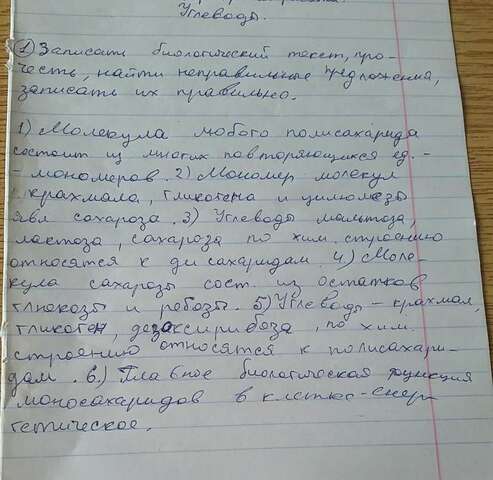 Углеводы.
1) Записать биологический текст, про-
честь, найти неправильные предложения,
записать их правильно.
1) Молекула любого полисахарида
состоит из многих повторяющихся ед. -
- мономеров. 2) Мономер молекул
крахмала, гликогена и цилюлозы
явл сахароза. 3) Углеводы мальтоза,
лактоза, сахароза по хим. строению
относятся к ди сахаридам. 4) Моле-
кула сахарозы сост. из остатков
глюкозы и рибозы. 5) Углеводы - крахмал,
гликоген, дезоксирибоза, по хим.
строению относятся к полисахари-
дам. 6.) Главное биологическая функция
моносахаридов в клетке - енер
гетическое.